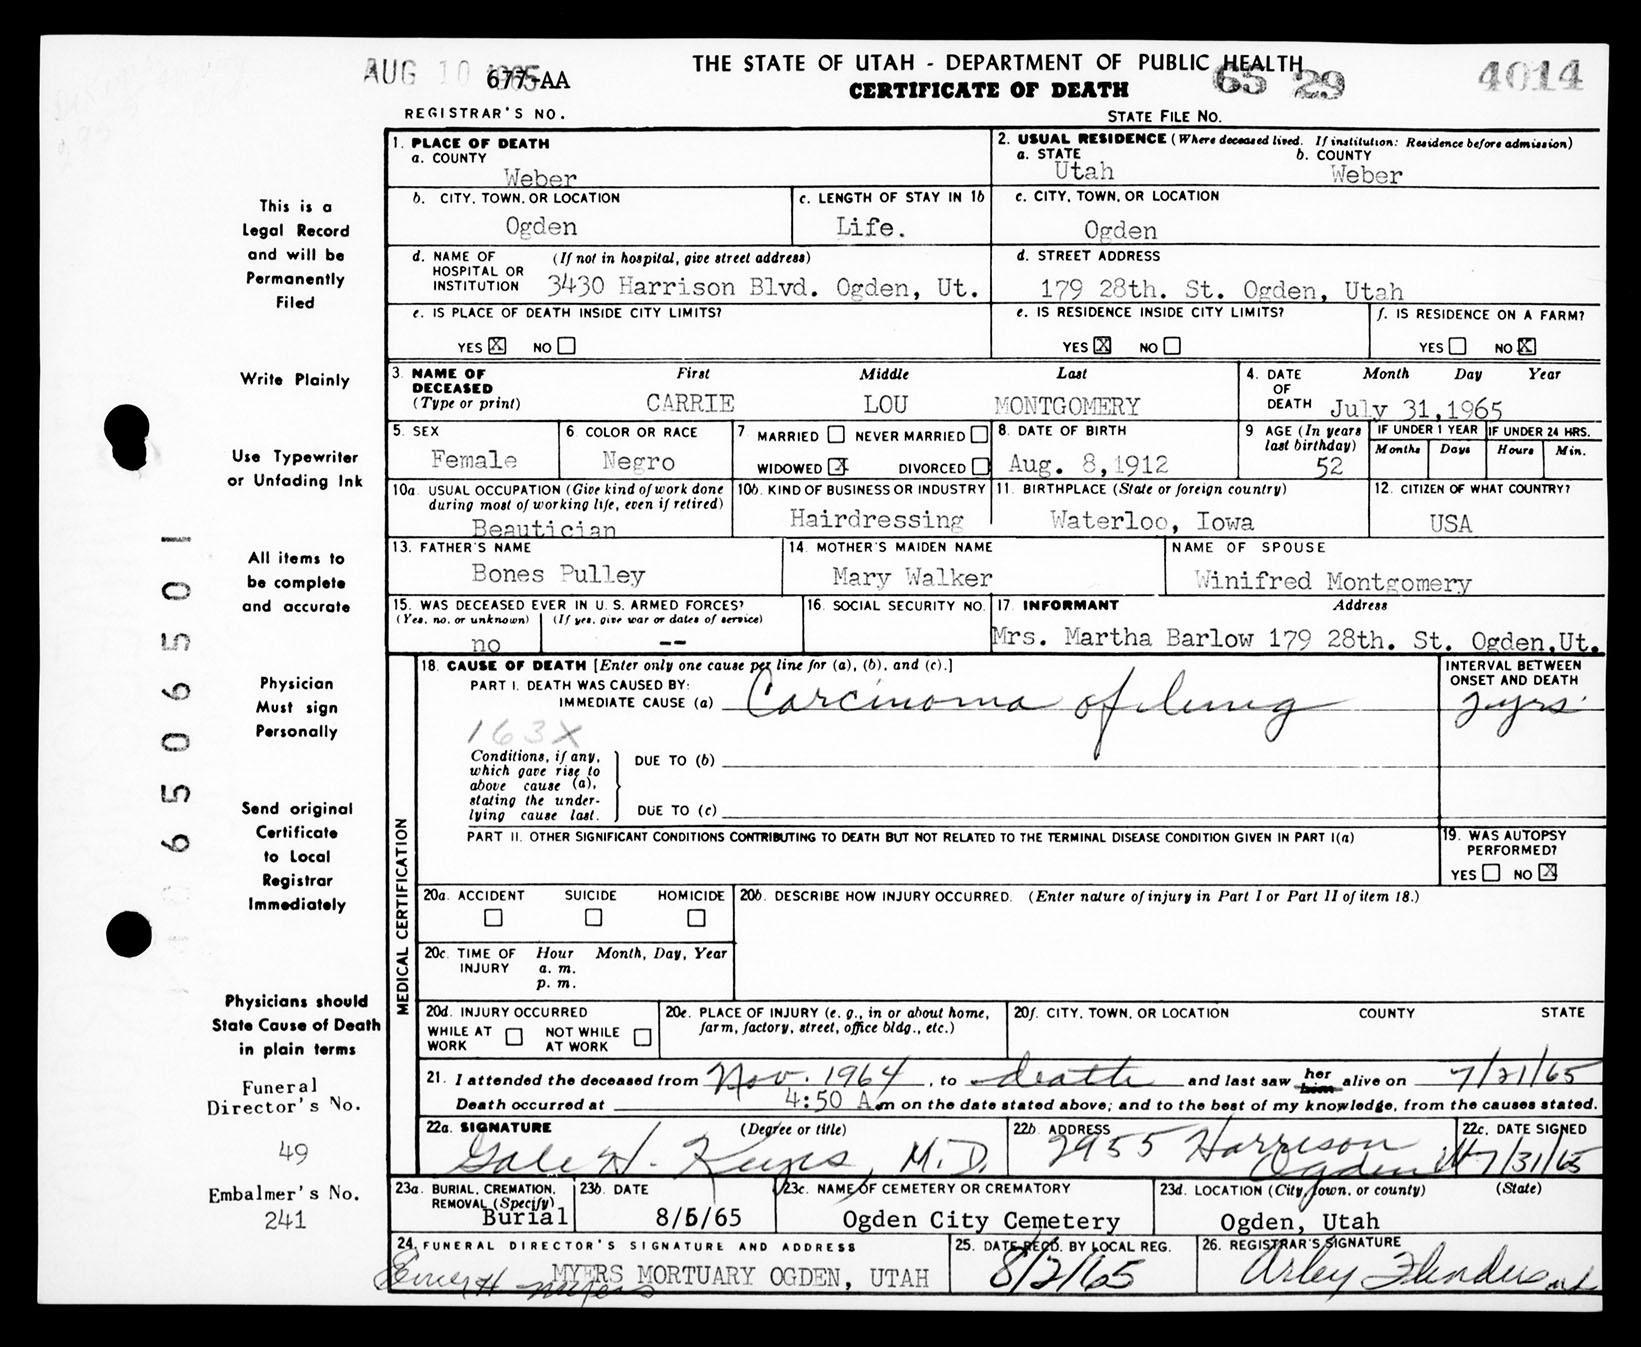 AUG 10 1965
677-AA
REGISTRAR'S NO.
THE STATE OF UTAH - DEPARTMENT OF PUBLIC HEALTH
CERTIFICATE OF DEATH
65 29 4014
STATE FILE NO.
This is a
Legal Record
and will be
Permanently
Filed
Write Plainly
Use Typewriter
or Unfading Ink
All items to
be complete
and accurate
Physician
Must sign
Personally
Send original
Certificate
to Local
Registrar
Immediately
Physicians should
State Cause of Death
in plain terms
Funeral
Director's No.
49
Embalmer's No.
241
650650I
1. PLACE OF DEATH
a. COUNTY
Weber
2. USUAL RESIDENCE (Where deceased lived. If institution: Residence before admission)
a. STATE b. COUNTY
Utah Weber
b. CITY, TOWN, OR LOCATION
Ogden
c. LENGTH OF STAY IN 1b
Life.
c. CITY, TOWN, OR LOCATION
Ogden
d. NAME OF (If not in hospital, give street address)
HOSPITAL OR
INSTITUTION 3430 Harrison Blvd. Ogden, Ut.
d. STREET ADDRESS
179 28th. St. Ogden, Utah
e. IS PLACE OF DEATH INSIDE CITY LIMITS?
YES X NO
e. IS RESIDENCE INSIDE CITY LIMITS?
YES X NO
f. IS RESIDENCE ON A FARM?
YES NO X
3. NAME OF First Middle Last
DECEASED
(Type or print) CARRIE LOU MONTGOMERY
4. DATE Month Day Year
OF
DEATH July 31,1965
5. SEX
Female
6. COLOR OR RACE
Negro
7. MARRIED NEVER MARRIED
WIDOWED X DIVORCED
8. DATE OF BIRTH
Aug. 8,1912
9 AGE (In years
last birthday)
52
IF UNDER 1 YEAR
Months Days
IF UNDER 24 HRS.
Hours Min.
10a. USUAL OCCUPATION (Give kind of work done
during most of working life, even if retired)
Beautician
10b. KIND OF BUSINESS OR INDUSTRY
Hairdressing
11. BIRTHPLACE (State or foreign country)
Waterloo, Iowa
12. CITIZEN OF WHAT COUNTRY?
USA
13. FATHER'S NAME
Bones Pulley
14. MOTHER'S MAIDEN NAME
Mary Walker
NAME OF SPOUSE
Winifred Montgomery
15. WAS DECEASED EVER IN U. S. ARMED FORCES?
(Yes, no, or unknown) (If yes, give war or dates of service)
no --
16. SOCIAL SECURITY NO.
17. INFORMANT Address
Mrs. Martha Barlow 179 28th. St. Ogden,Ut.
MEDICAL CERTIFICATION
18. CAUSE OF DEATH [Enter only one cause per line for (a), (b), and (c).]
PART I. DEATH WAS CAUSED BY:
IMMEDIATE CAUSE (a) Carcinoma of lung
INTERVAL BETWEEN
ONSET AND DEATH
2 yrs
163X
Conditions, if any,
which gave rise to
above cause (a),
stating the under-
lying cause last.
DUE TO (b)
DUE TO (c)
PART II. OTHER SIGNIFICANT CONDITIONS CONTRIBUTING TO DEATH BUT NOT RELATED TO THE TERMINAL DISEASE CONDITION GIVEN IN PART I(a)
19. WAS AUTOPSY
PERFORMED?
YES NO X
20a. ACCIDENT SUICIDE HOMICIDE
20b. DESCRIBE HOW INJURY OCCURRED. (Enter nature of injury in Part I or Part II of item 18.)
20c. TIME OF Hour Month, Day, Year
INJURY a. m.
p. m.
20d. INJURY OCCURRED
WHILE AT NOT WHILE
WORK AT WORK
20e. PLACE OF INJURY (e. g., in or about home,
farm, factory, street, office bldg., etc.)
20f. CITY, TOWN, OR LOCATION COUNTY STATE
21. I attended the deceased from Nov. 1964, to death and last saw her him alive on 7/21/65
Death occurred at 4:50 A.m on the date stated above; and to the best of my knowledge, from the causes stated.
22a. SIGNATURE (Degree or title)
Gale H. M.D.
22b. ADDRESS
2955 Harrison
Ogden Ut
22c. DATE SIGNED
7/31/65
23a. BURIAL, CREMATION,
REMOVAL (Specify)
Burial
23b. DATE
8/5/65
23c. NAME OF CEMETERY OR CREMATORY
Ogden City Cemetery
23d. LOCATION (City, town, or county) (State)
Ogden, Utah
24. FUNERAL DIRECTOR'S SIGNATURE AND ADDRESS
H Myers
MYERS MORTUARY OGDEN, UTAH
25. DATE RECD. BY LOCAL REG.
8/2/65
26. REGISTRAR'S SIGNATURE
Arley Flinders